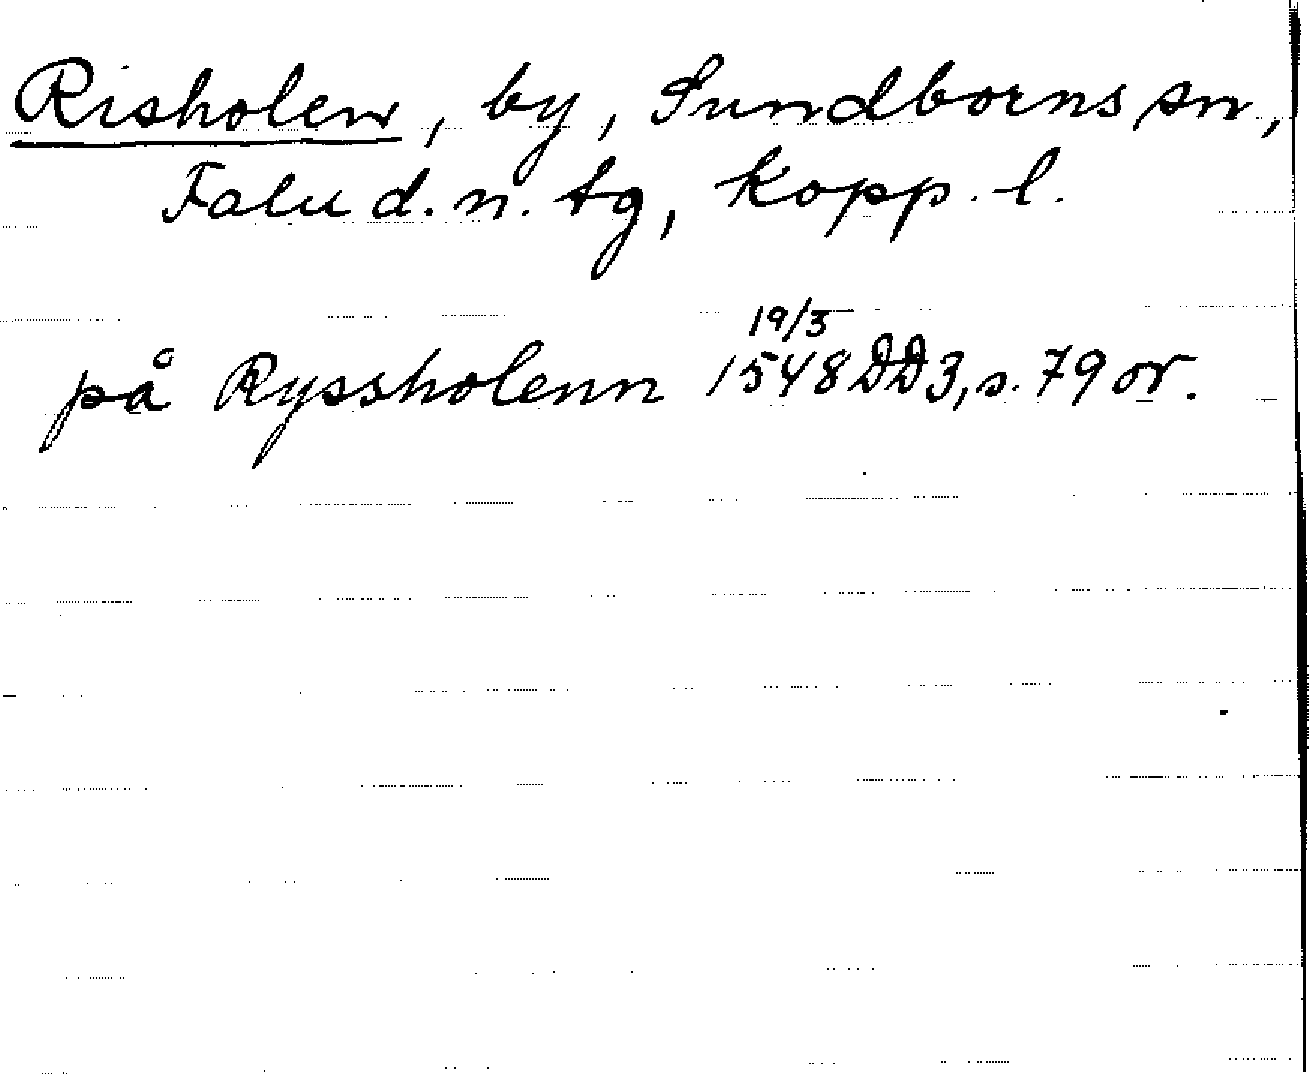 Risholen, by, Sundborns sn,
Falu d. n. tg, Kopp. l.
19/3
på Ryssholenn 1548 DD3, s. 79 or.